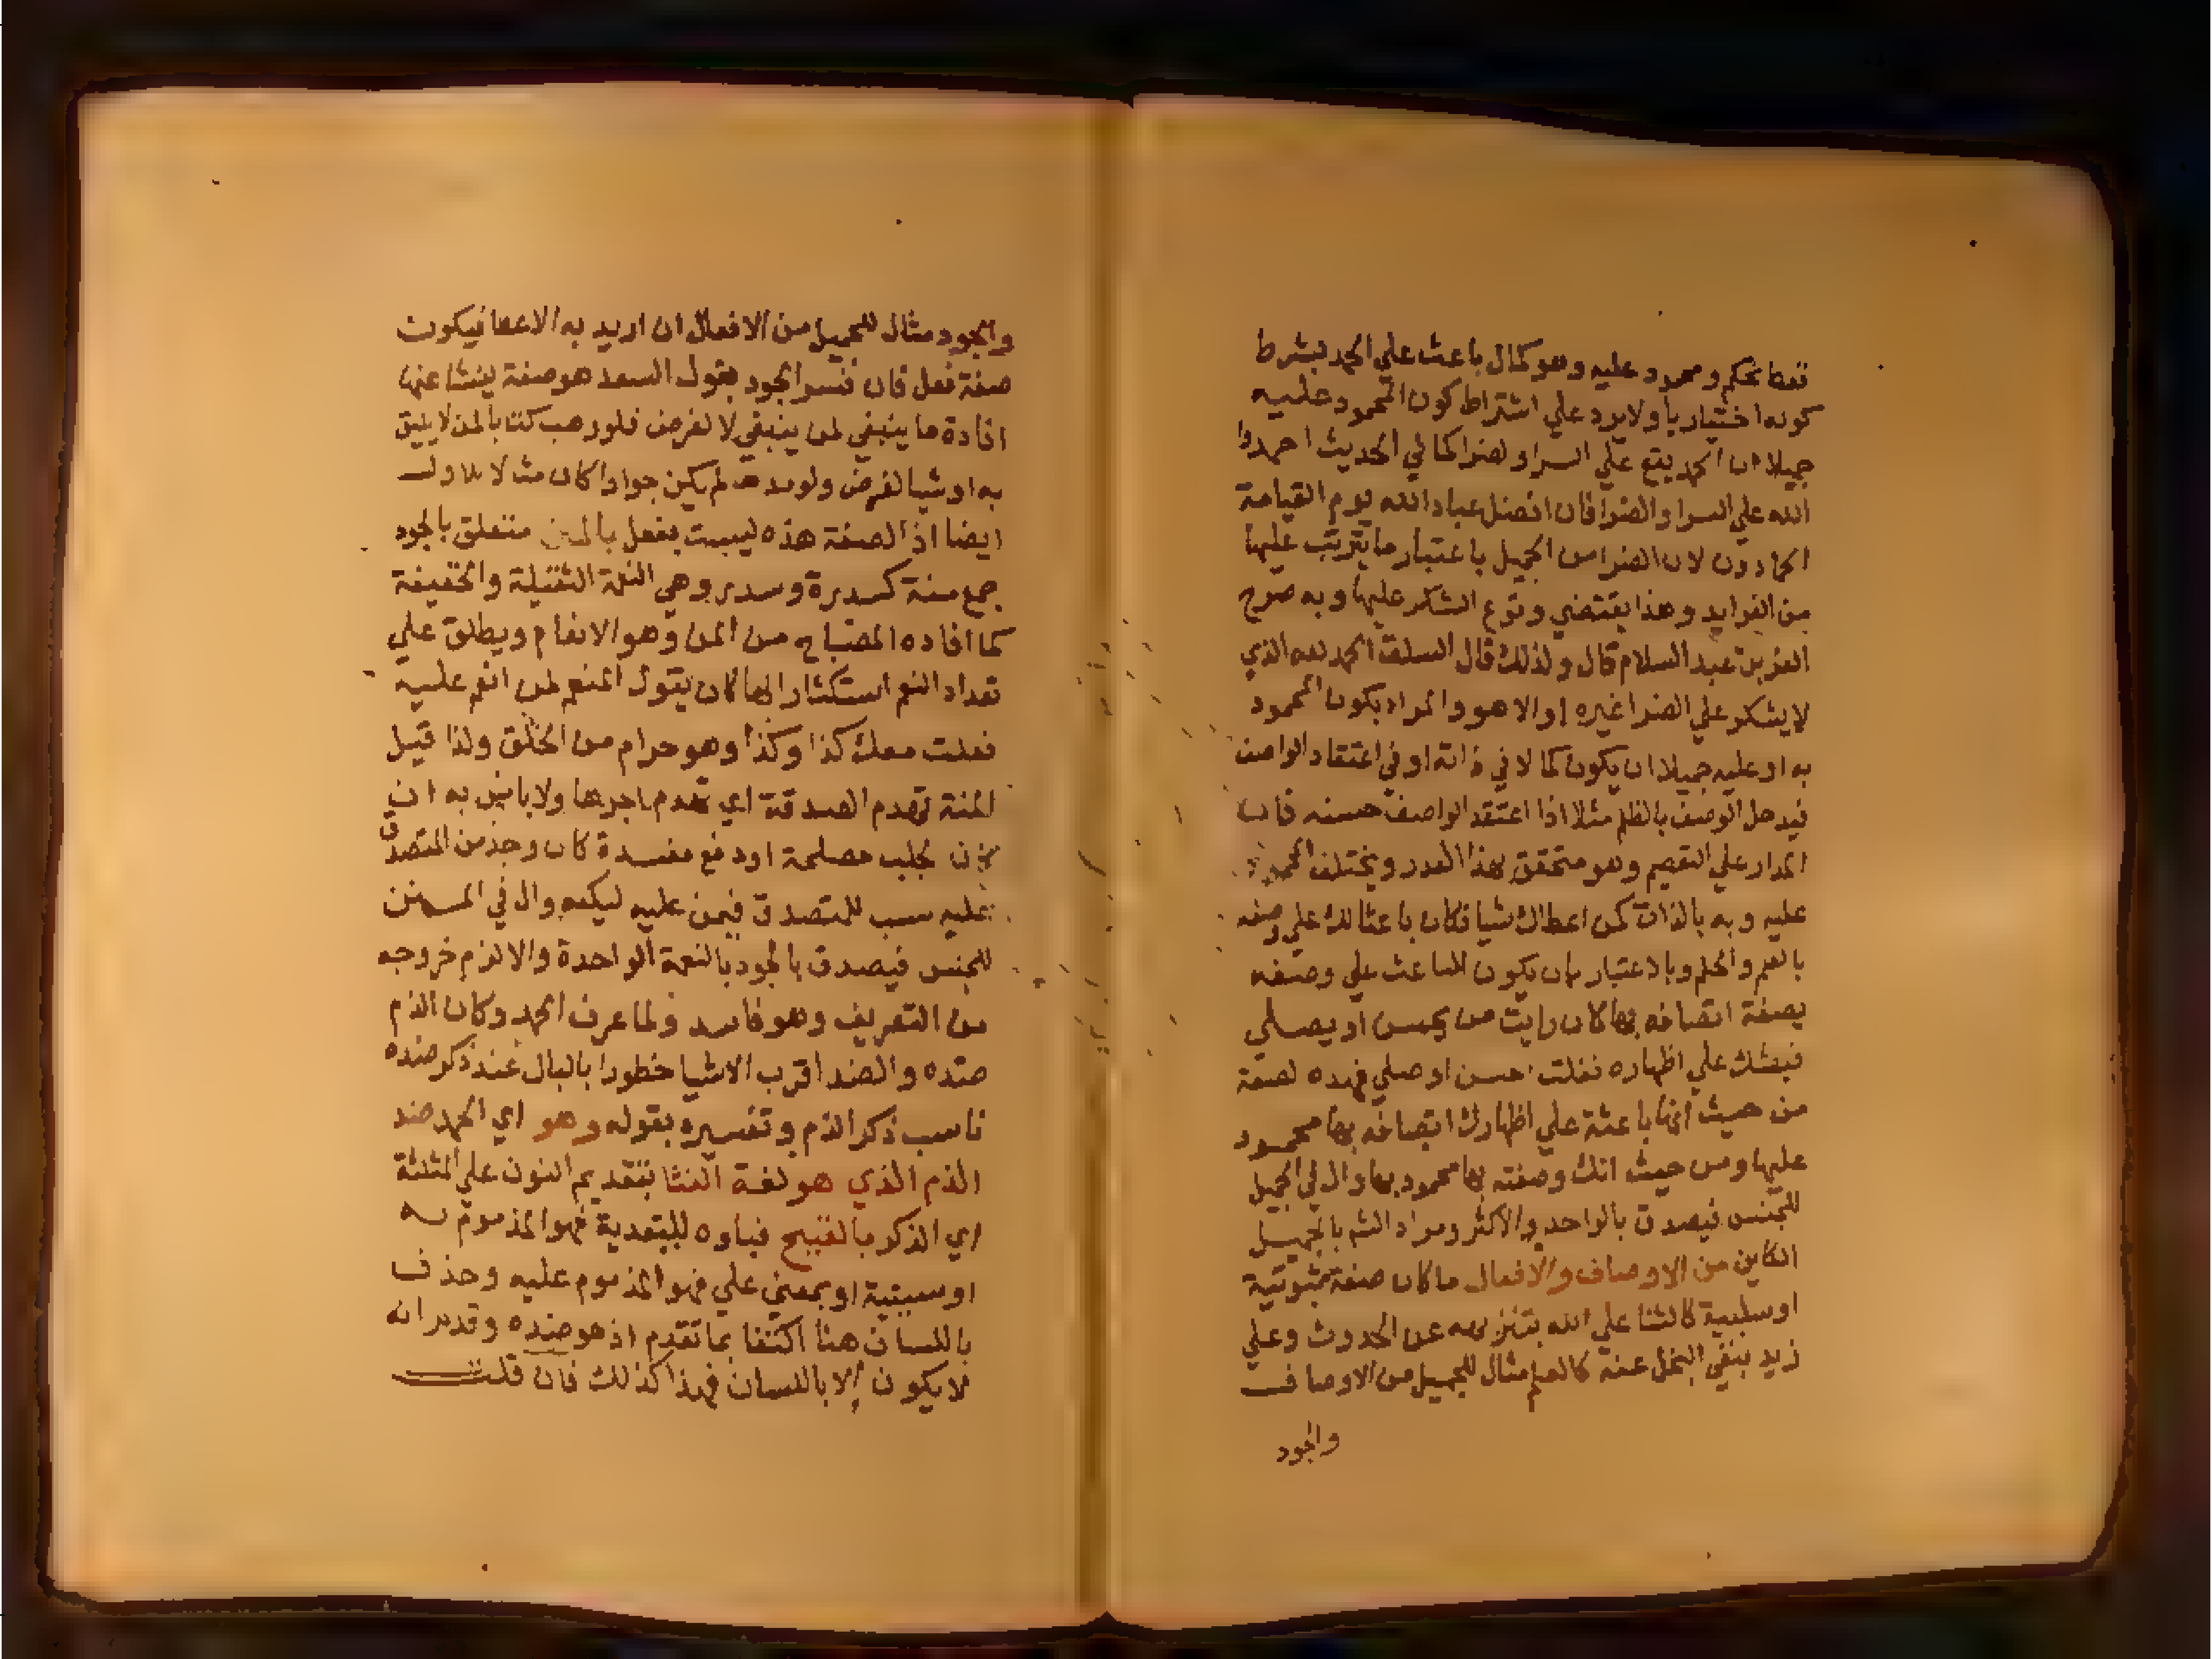 فعطا محكم ومحمود عليه وهو كمال باعث علي الحمد بشرط
كونه اختياريا ولايرد علي اشتراط كون المحمود عليه
جميلا ان الحمد يقع علي السرا والضرا كما في الحديث احمدوا
الله علي السرا والضرا فان افضل عباد الله يوم القيامة
الحمادون لان الضرا من الجميل باعتبار ما يترتب عليها
من الفوايد وهذا يقتضي وقوع الشكر عليها وبه صرح
العز بن عبد السلام قال ولذلك قال السلف الحمد لله الذي
لا يشكر علي الضرا غيره اولا هو والمراد بكون المحمود
به او عليه جميلا ان يكون كمالا في ذاته او في اعتقاد الواصف
فيدخل الوصف بالظلم مثلا اذا اعتقد الواصف حسنه فان
المدار علي التعميم وهو متحقق بهذا القدر ويختلف المحمود
عليه وبه بالذات كمن اعطاك شيا فكان باعثا لك علي وصفه
بالعلم والحلم وبالاعتبار بان يكون الباعث علي وصفه
بصفة اتصافه بها كان رايت من يحسن او يصلي
فبعثك علي اظهاره فقلت احسن او صلي فهذه الصفة
من حيث انها باعثة علي اظهارك اتصافه بها محمود
عليها ومن حيث انك وصفته بها محمود بها وال في الجميل
للجنس فيصدق بالواحد والاكثر ومراد الشم بالجميل
الكاين من الاوصاف والافعال ما كان صفة ثبوتية
او سلبية كالثنا علي الله بتنزيهه عن الحدوث وعلي
زيد بنفي البخل عنه كالعلم مثال للجميل من الاوصاف
والجود
والجود مثال للجميل من الافعال ان اريد به الاعطا فيكون
صفة فعل فان فسر الجود بقول السعد هو صفة ينشا عنها
افادة ما ينبغي لمن ينبغي لا لغرض فلو وهب كتابا لمن لا يليق
به او شيا لغرض ولو مدحا لم يكن جوادا كان مثالا للاول
ايضا اذ الصفة هذه ليست بفعل بالمنن متعلق بالجود
جمع منة كسدرة وسدر وهي النعمة الثقيلة والخفيفة
كما افاده المصباح من المن وهو الانعام ويطلق علي
تعداد النعم استكثارا لها كان يقول المنعم لمن انعم عليه
فعلت معك كذا وكذا وهو حرام من الخلق ولذا قيل
المنة تهدم الصدقة اي تهدم اجرها ولا باس به ان
كان لجلب مصلحة او دفع مفسدة كان وجد من المتصدق
عليه سب للمتصدق فيمن عليه ليكفه وال في المنن
للجنس فيصدق بالجود بالنعمة الواحدة والا لزم خروجه
من التعريف وهو فاسد ولما عرف الحمد وكان الذم
ضده والضد اقرب الاشيا خطورا بالبال عند ذكر ضده
ناسب ذكر الذم وتفسيره بقوله وهو اي الحمد ضد
الذم الذي هو لغة النثا بتقديم النون علي المثلثة
اي الذكر بالقبيح فباوه للتعدية فهو المذموم به
او سببية او بمعني علي فهو المذموم عليه وحذف
باللسان هنا اكتفا بما تقدم اذ هو ضده وقد مر انه
لا يكون الا باللسان فهذا كذلك فان قلت